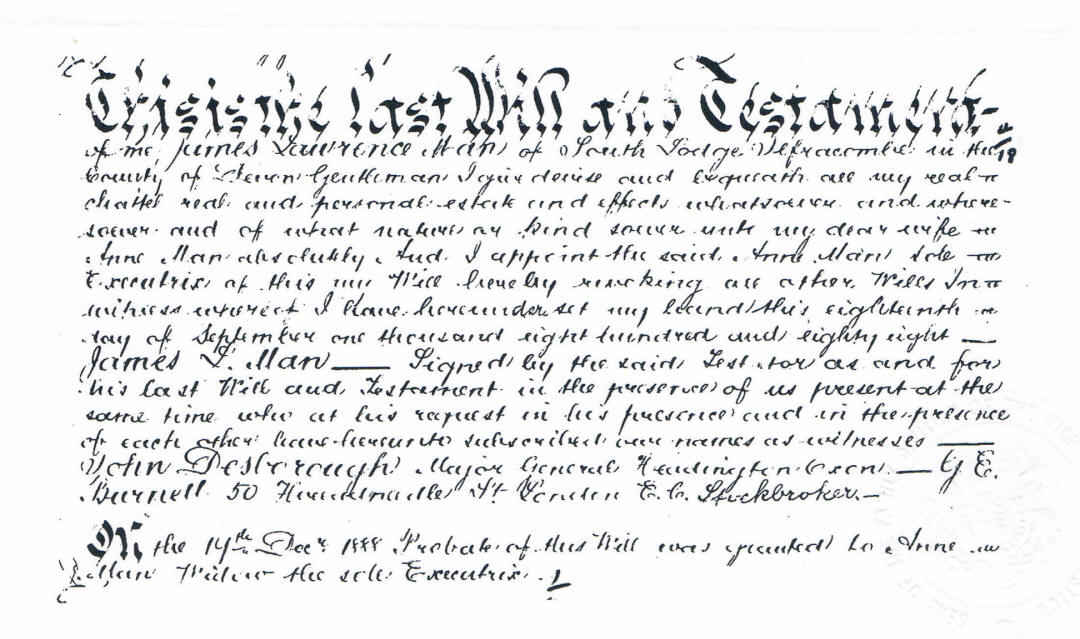 This is the last Will and Testament
of me James Lawrence Man of South Lodge Ilfracombe in the
County of Devon Gentleman I give devise and bequeath all my real
chattel real and personal estate and effects whatsoever and where-
soever and of what nature or kind soever unto my dear wife
Anne Man absolutely And I appoint the said Anne Man sole
Executrix of this my Will hereby revoking all other Wills In
witness whereof I have hereunder set my hand this eighteenth
day of September one thousand eight hundred and eighty eight —
James L. Man — Signed by the said Testator as and for
his last Will and Testament in the presence of us present at the
same time who at his request in his presence and in the presence
of each other have hereunto subscribed our names as witnesses —
John Desborough Major General Headington Oxon. — G. E.
Burnell 50 St London E.C. Stockbroker. —
On the 14th Decr. 1888 Probate of this Will was granted to Anne
Man Widow the sole Executrix.
SEAL OF